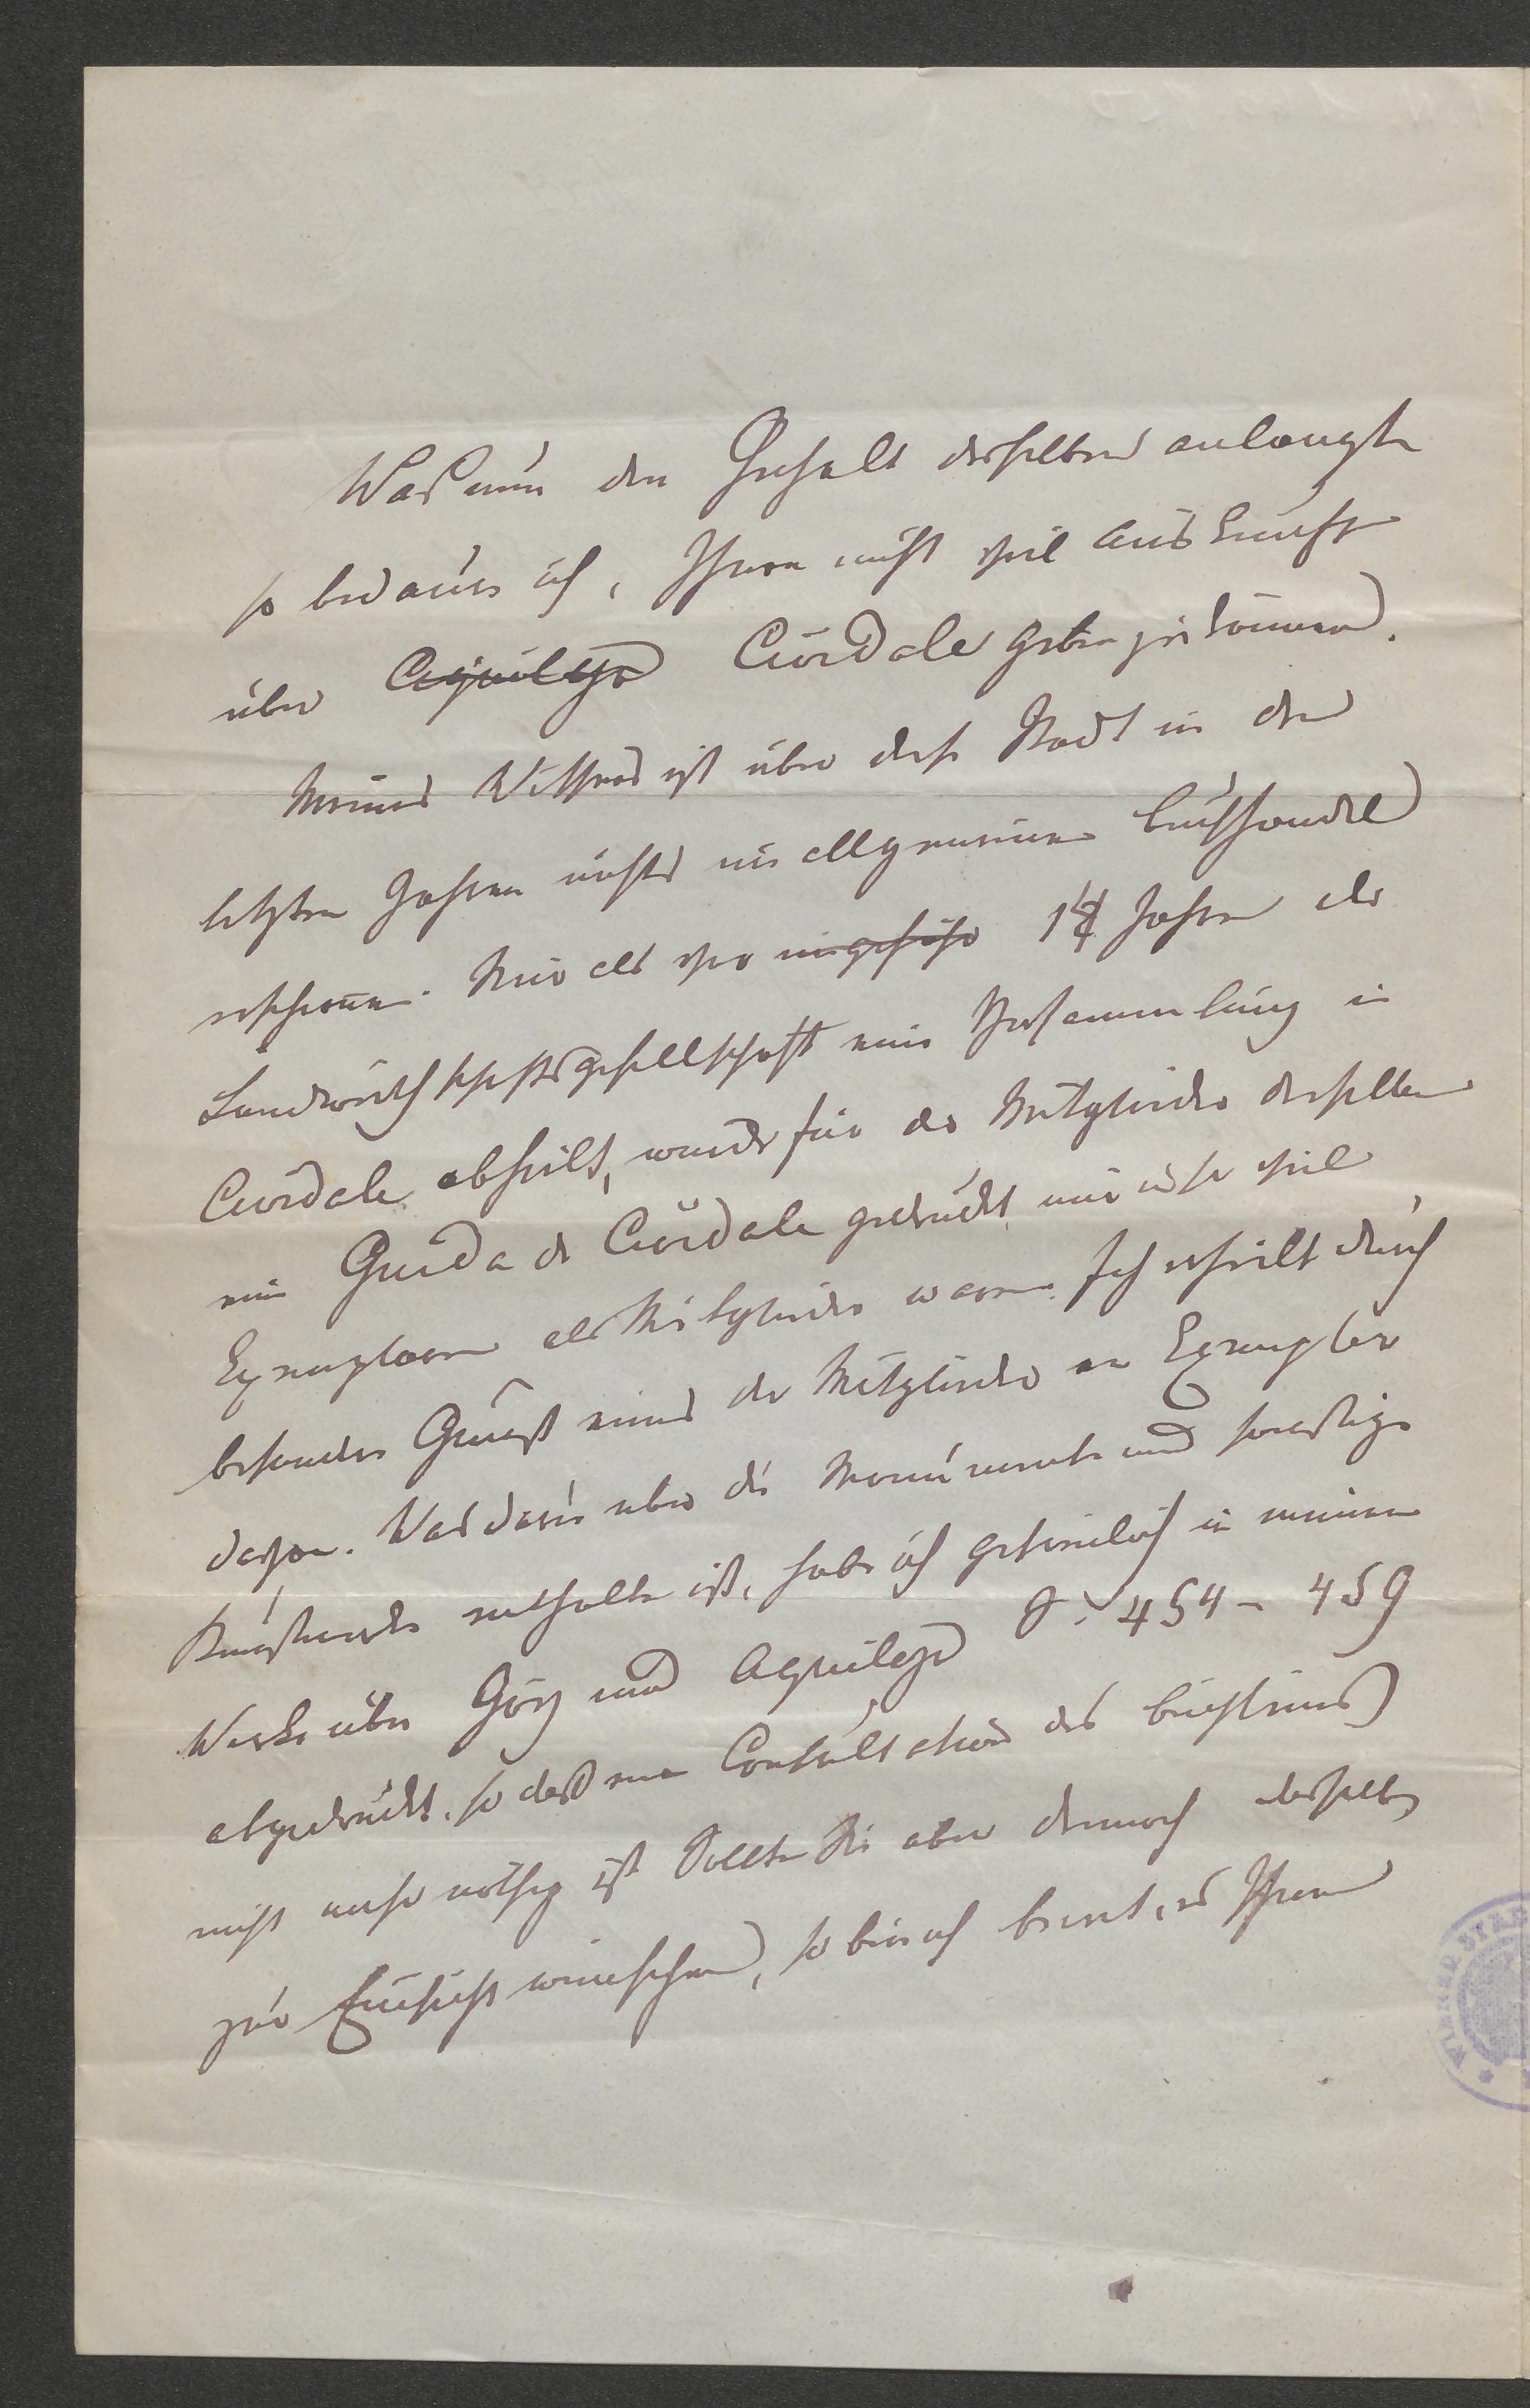 Was nun den Gehalt derselben anlangt
so bedaure ich, Ihnen nicht viel Auskunft
über Aquileja Cividale geben zu können.
Meines Wissens ist über diese Stadt in den
letzten Jahren nichts im allgemeinen Buchhandel
erschienen. Nur als vor ungefähr Jahren die
Landwirthschaftsgesellschaft eine Versammlung in
Cividale abhielt, wurde für die Mitglieder derselben
eine Guida di Cividale gedruckt nur in so viel
Exemplaren als Mitglieder waren. Ich erhielt durch
besondere Gunst eines der Mitglieder ein Exemplar
davon. Was darin über die Monumente und sonstige
Kunstwerke enthalten ist, habe ich getreulich in meinem
Werke über Görz und Aquileja S. 454 – 459
abgedruckt, so daß eine Consultation des Büchleins
nicht mehr nöthig ist Sollten Sie aber dennoch dasselbe
zur Einsicht wünschen, so bin ich bereit, es Ihnen
WIENER